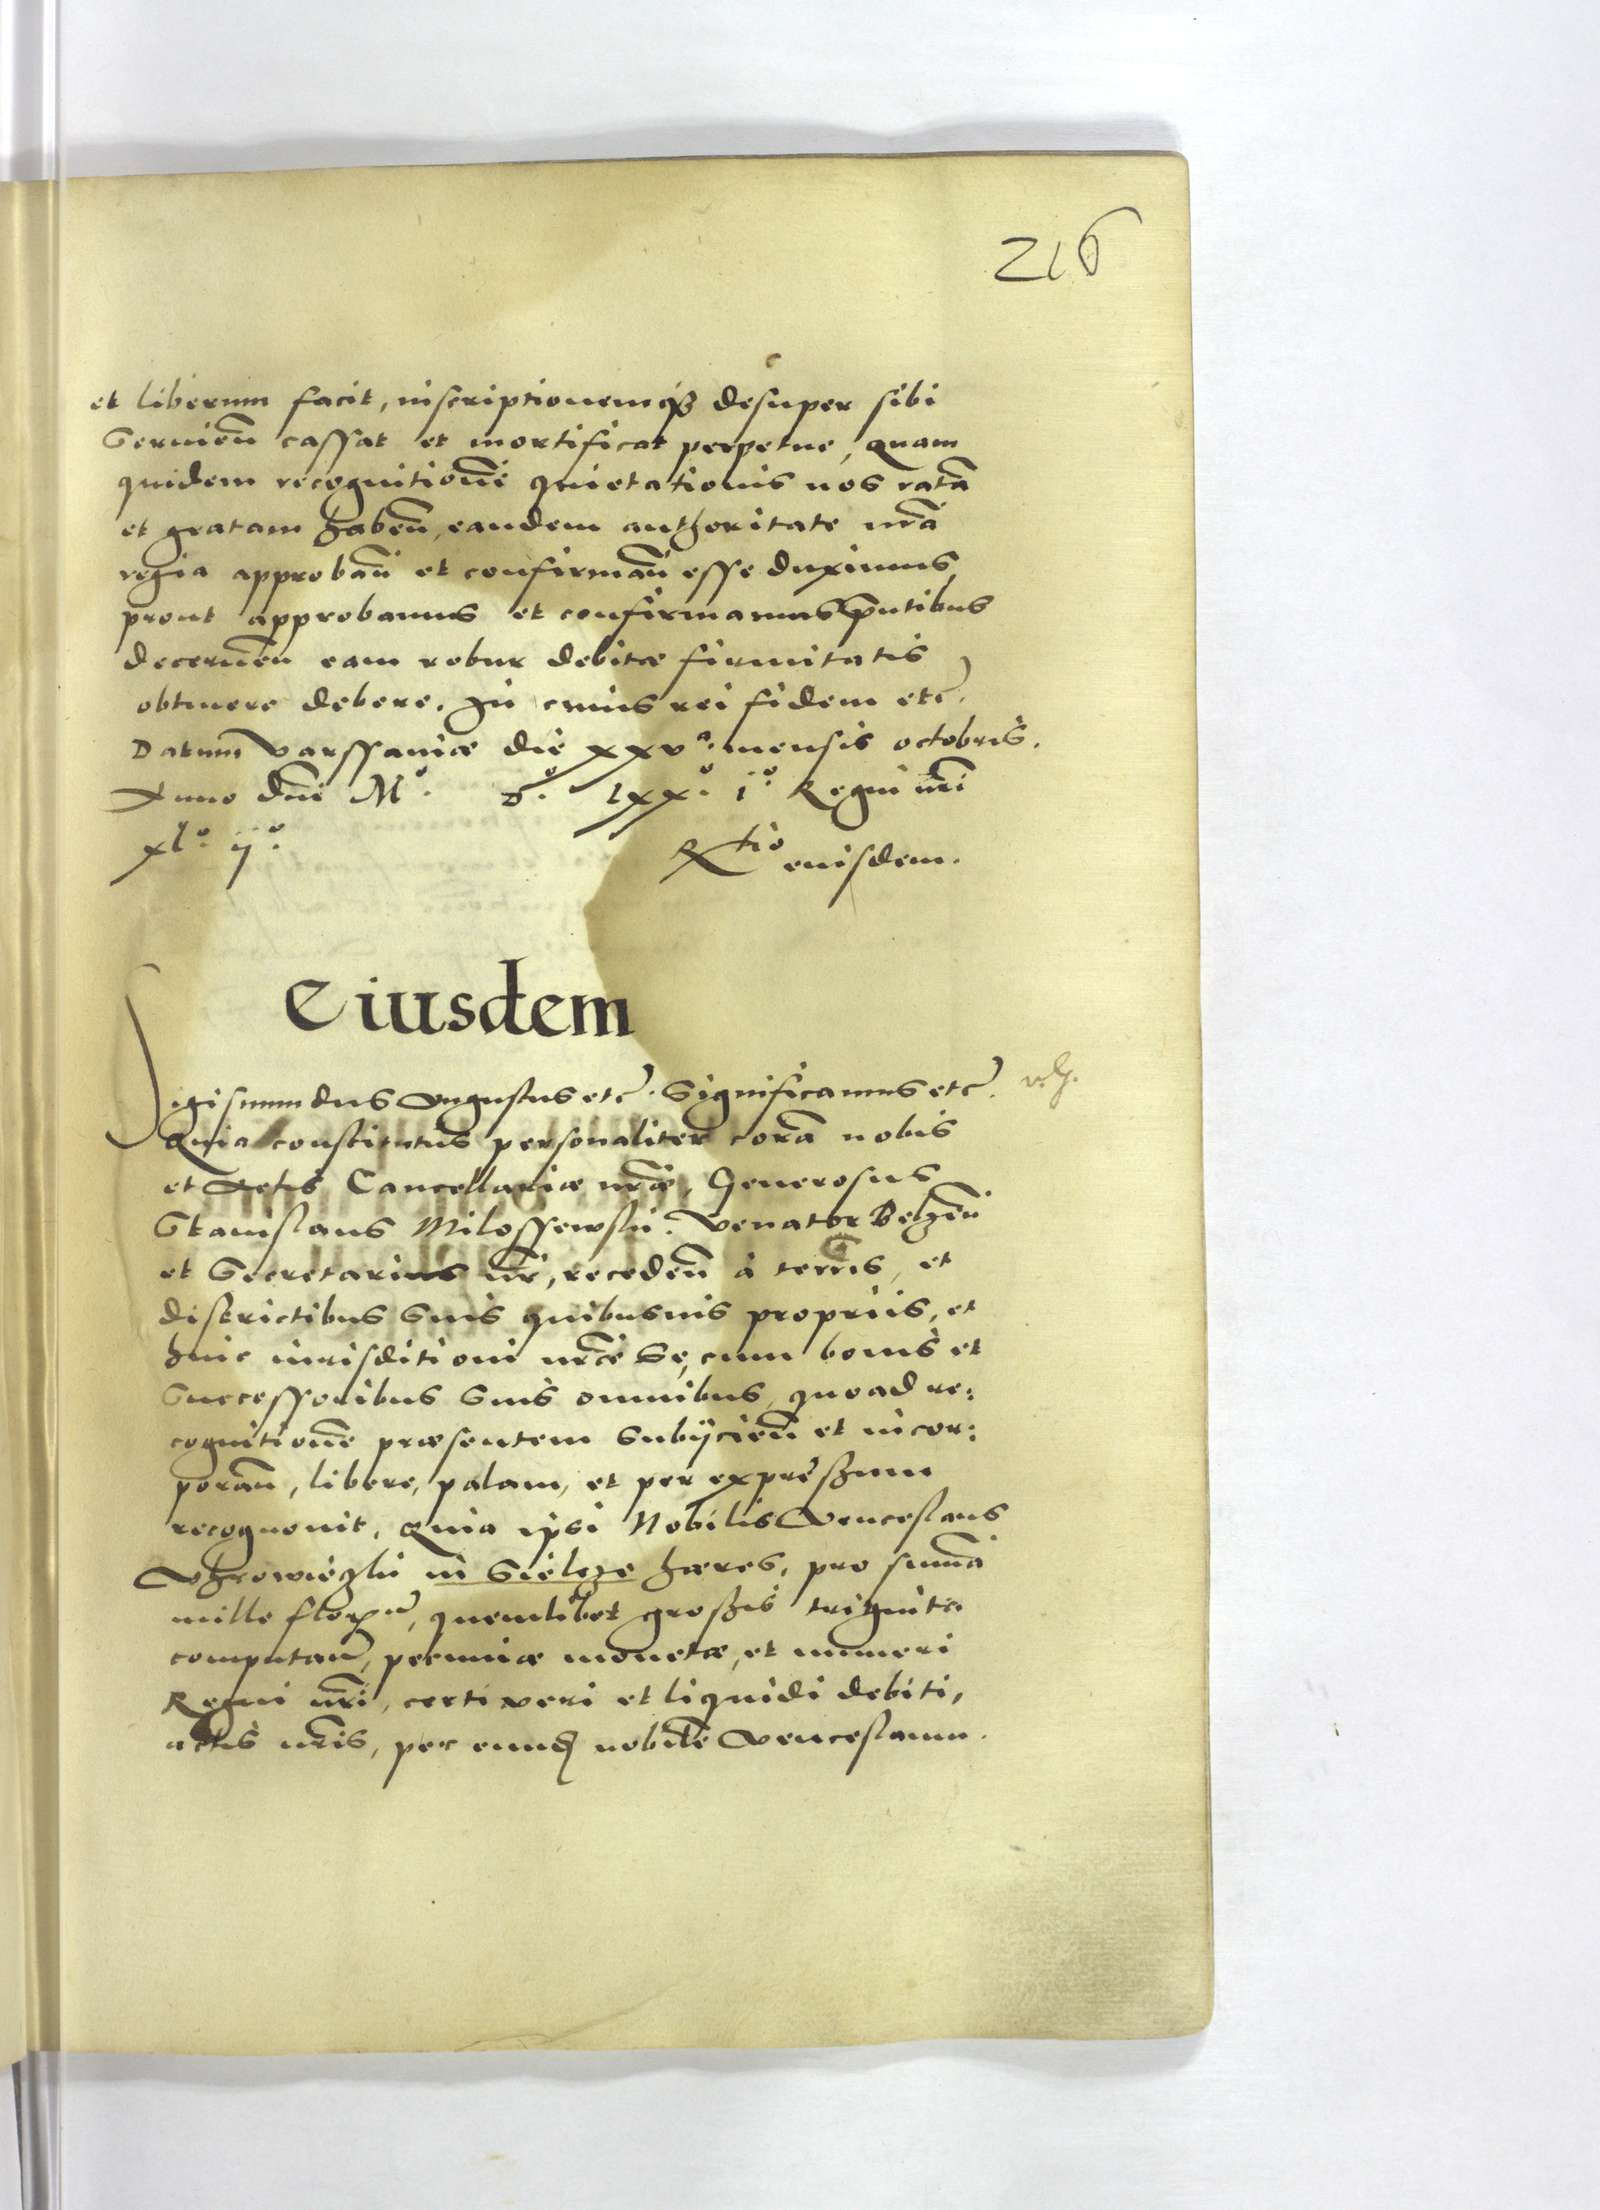 216
et liberum facit, inscriptionemq₃ desuper sibi
Servieñ cassat et mortificat perpetue, quam
quidem recognitionẽ quietationis nos ratã
et gratam habeñ, eandem authoritate nrã
regia approbañ et confirmañ esse duximus,
prout approbamus et confirmamus pñtibus
decerneñ eam robur debitæ firmitatis
obtinere debere. In cuius rei fidem etc̃.
Datum Varssaviæ die xxvᵃ. mensis octobris.
Anno dñi Mº. Dº. lxxº. iº. Regni nrĩ
xlº. ijº. Rtio eiusdem.
Eiusdem
Sigismundus Augustus etc̃. Significamus etc̃.
Quia constitutus personaliter corã nobis
et Actis Cancellariæ nrãe, Generosus
Stanislaus Milossewski. Venator Belzeñ
et Secretarius nr̃, recedeñ à terris, et
districtibus suis quibusvis propriis, et
huic iurisditioni nrãe se, cum bonis et
Successoribus suis omnibus, quoad re:
cognitionẽ præsentem subijcieñ et incor:
porañ, libere, palam, et per expressum
recognovit, Quia ipsi Nobilis Venceslaus
Vhrowieczki in Sielcze hæres, pro summa
mille flor., quemlibet grossis triginta
computañ, pecuniæ monetæ, et numeri
Regni nrĩ, certi veri et liquidi debiti,
actis nrĩs, per eund nobilẽ Venceslaum.